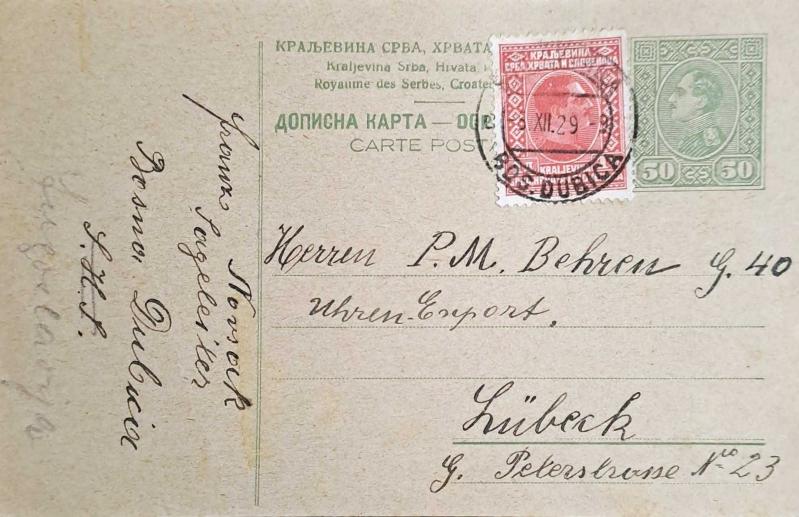 КРАЉЕВИНА СРБА, ХРВАТА
Kraljevina Srba, Hrvata
Royaume des Serbes, Croates
ДОПИСНА КАРТА — DOP
CARTE POST
КРАЉЕВИНА
СРБА, ХРВАТА И СЛОВЕНАЦА
KRALJEVINA
XII.29
BOS. DUBICA
50 50
Herren P. M. Behren G. 40
Uhren-Export,
Lübeck
G. Peterstrasse No 23
Franz Novsak
Sageleiter
Bosna Dubica
S.H.S.
Jugoslavija